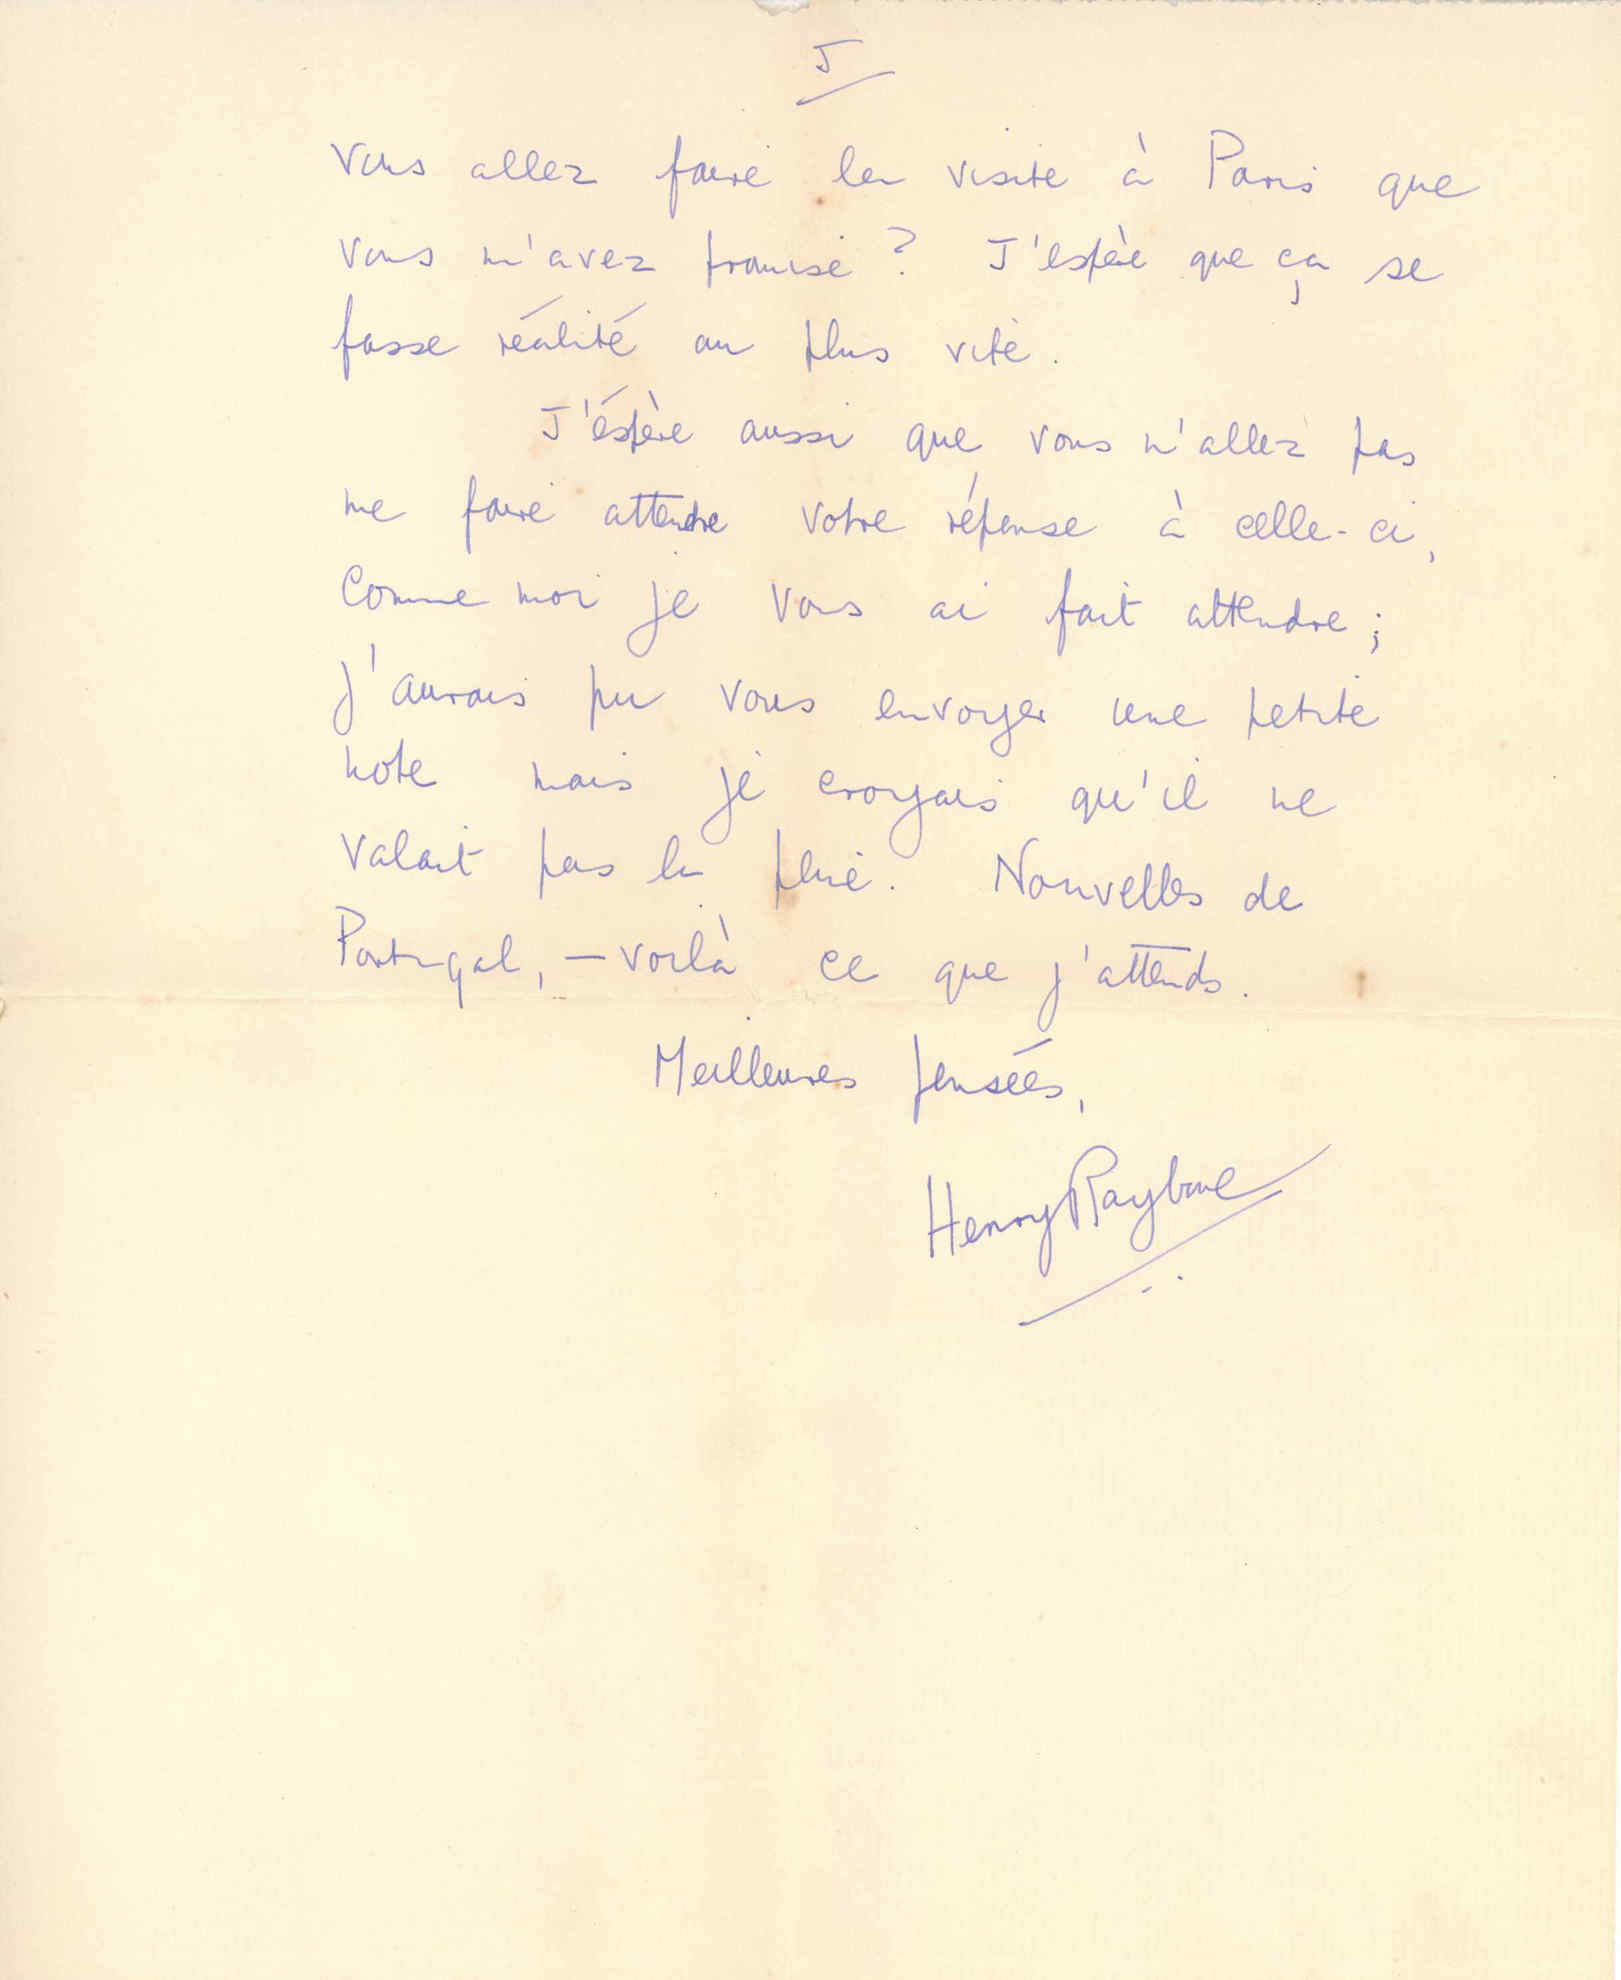 5
vous allez faire la visite à Paris que
vous m'avez promise ? J'espère que ça se
fasse réalité au plus vite.
J'éspère aussi que vous n'allez pas
me faire attendre votre réponse à celle-ci,
comme moi je vous ai fait attendre ;
j'aurais pu vous envoyer une petite
note mais je croyais qu'il ne
valait pas la peine. Nouvelles de
Portugal, — voilà ce que j'attends.
Meilleures pensées,
Henry